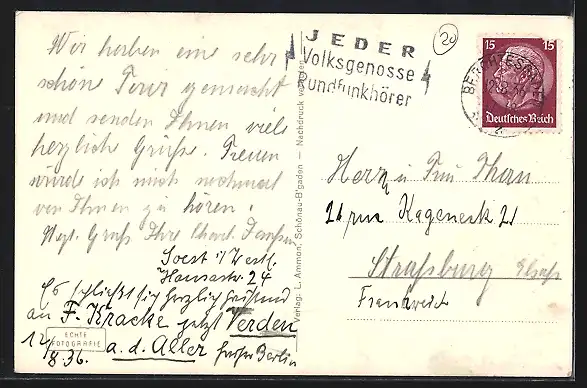 Wir haben eine sehr
schöne Tour gemacht
und senden Ihnen viele
herzliche Grüße. Freuen
würde ich mich nochmal
von Ihnen zu hören.
Hzgl. Gruß Ihre
Soest i/Westf.
Hansastr. 24
Es schließt sich herzlich
an F. Kracke jetzt Verden
a. d. Aller
12/8.36.
ECHTE
FOTOGRAFIE
Verlag: L. Ammon, Schönau-B'gaden — Nachdruck verboten
JEDER
Volksgenosse
Rundfunkhörer
20
15 15
Deutsches Reich
BERCHTESGADEN
Herrn u Frau
21 rue Kageneck 21
Straßburg Elsaß
Frankreich